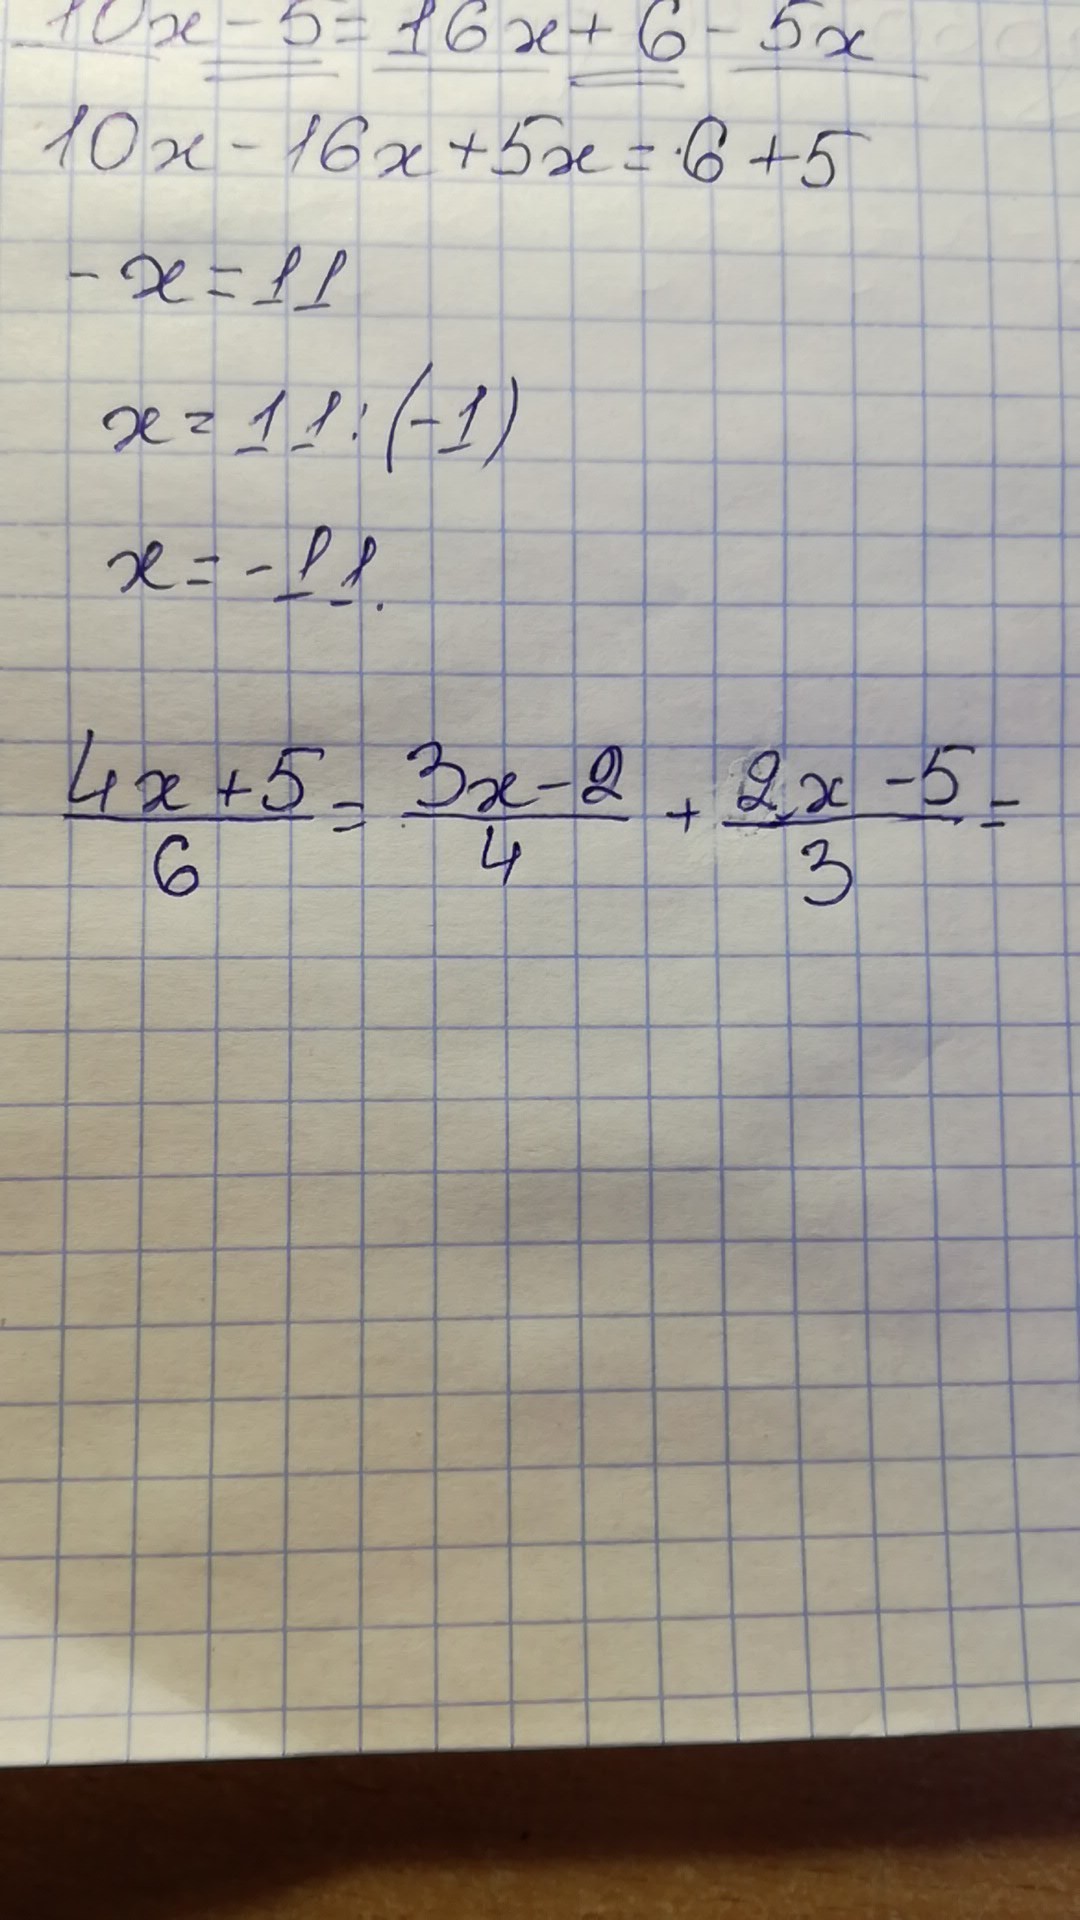 10x - 5 = 16x + 6 - 5x
10x - 16x + 5x = 6 + 5
-x = 11
x = 11 : (-1)
x = -11.
(4x + 5)/6 = (3x - 2)/4 + (2x - 5)/3 =